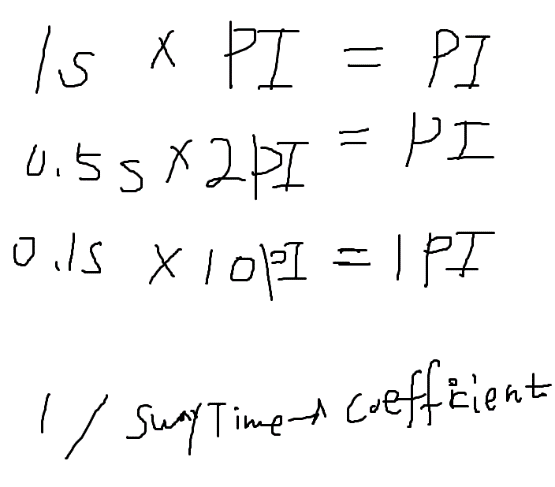 1s × PI = PI
0.5s × 2PI = PI
0.1s × 10PI = 1PI
1 / SwayTime → Coefficient